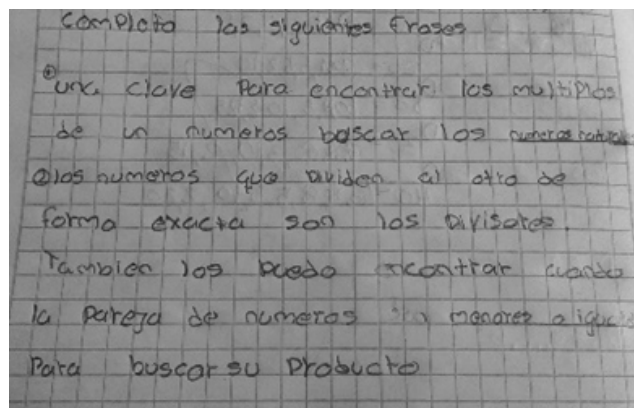 completo las siguientes frases
una clave para encontrar los multiplos
de un numeros buscar los numeros
los numeros que dividen al otro de
forma exacta son los divisores.
Tambien los puedo encontrar cuando
la pareja de numeros menores o igual
Para buscar su producto